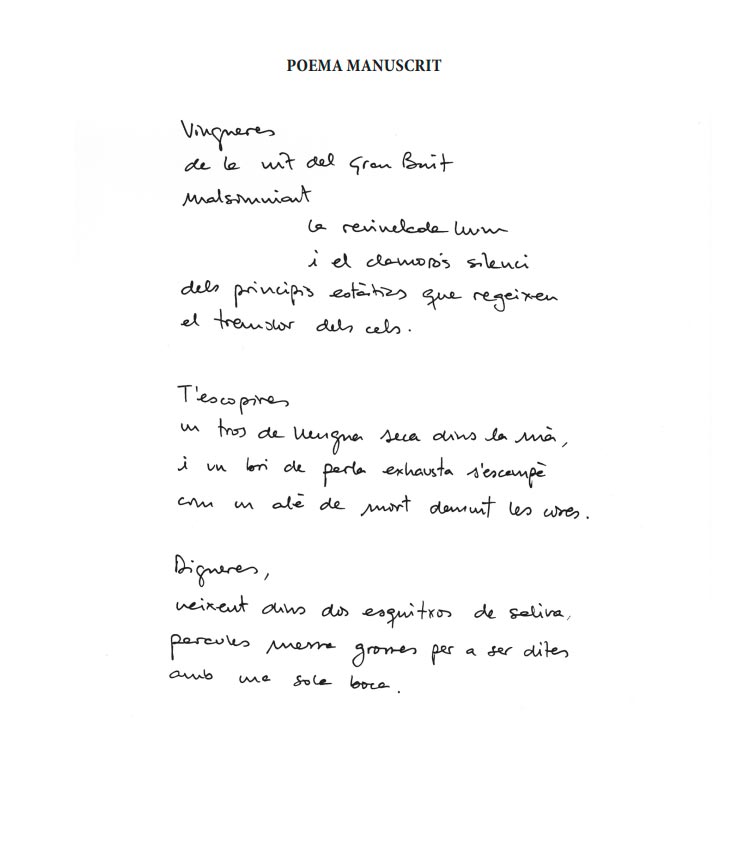 POEMA MANUSCRIT
Vingueres
de la nit del Gran Buit
malsomniant
la revinclada llum
i el clamorós silenci
dels principis estàtics que regeixen
el tremolor dels cels.
T'escopires
un tros de llengua seca dins la mà,
i un bri de parla exhausta s'escampà
com un alè de mort damunt les coses.
Digueres,
naixent dins dos esquitxos de saliva,
paraules massa grosses per a ser dites
amb una sola boca.